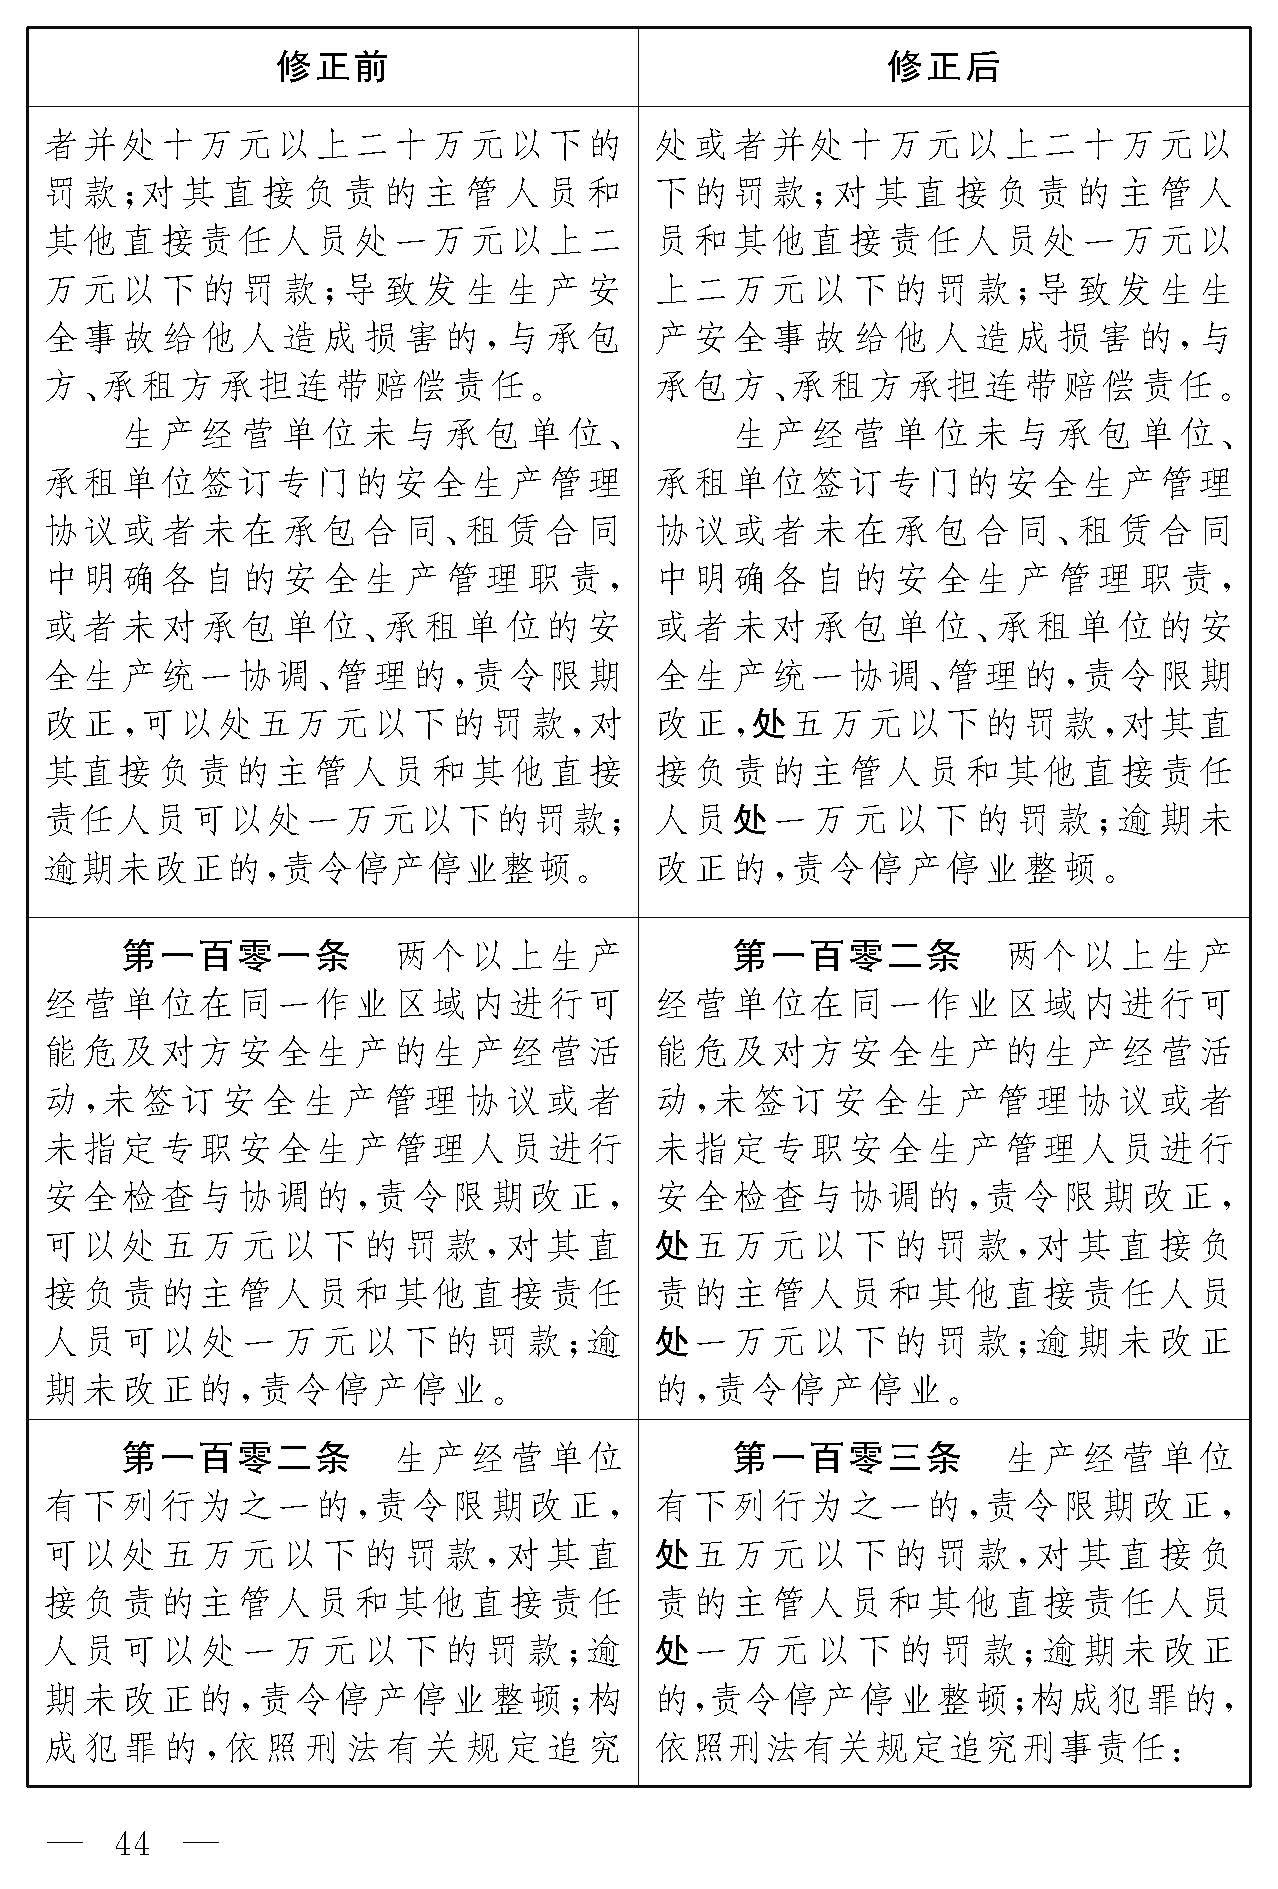 修正前
者并处十万元以上二十万元以下的
罚款;对其直接负责的主管人员和
其他直接责任人员处一万元以上二
万元以下的罚款;导致发生生产安
全事故给他人造成损害的,与承包
方、承租方承担连带赔偿责任。
生产经营单位未与承包单位、
承租单位签订专门的安全生产管理
协议或者未在承包合同、租赁合同
中明确各自的安全生产管理职责,
或者未对承包单位、承租单位的安
全生产统一协调、管理的,责令限期
改正,可以处五万元以下的罚款,对
其直接负责的主管人员和其他直接
责任人员可以处一万元以下的罚款;
逾期未改正的,责令停产停业整顿。
第一百零一条 两个以上生产
经营单位在同一作业区域内进行可
能危及对方安全生产的生产经营活
动,未签订安全生产管理协议或者
未指定专职安全生产管理人员进行
安全检查与协调的,责令限期改正,
可以处五万元以下的罚款,对其直
接负责的主管人员和其他直接责任
人员可以处一万元以下的罚款;逾
期未改正的,责令停产停业。
第一百零二条 生产经营单位
有下列行为之一的,责令限期改正,
可以处五万元以下的罚款,对其直
接负责的主管人员和其他直接责任
人员可以处一万元以下的罚款;逾
期未改正的,责令停产停业整顿;构
成犯罪的,依照刑法有关规定追究
修正后
处或者并处十万元以上二十万元以
下的罚款;对其直接负责的主管人
员和其他直接责任人员处一万元以
上二万元以下的罚款;导致发生生
产安全事故给他人造成损害的,与
承包方、承租方承担连带赔偿责任。
生产经营单位未与承包单位、
承租单位签订专门的安全生产管理
协议或者未在承包合同、租赁合同
中明确各自的安全生产管理职责,
或者未对承包单位、承租单位的安
全生产统一协调、管理的,责令限期
改正,处五万元以下的罚款,对其直
接负责的主管人员和其他直接责任
人员处一万元以下的罚款;逾期未
改正的,责令停产停业整顿。
第一百零二条 两个以上生产
经营单位在同一作业区域内进行可
能危及对方安全生产的生产经营活
动,未签订安全生产管理协议或者
未指定专职安全生产管理人员进行
安全检查与协调的,责令限期改正,
处五万元以下的罚款,对其直接负
责的主管人员和其他直接责任人员
处一万元以下的罚款;逾期未改正
的,责令停产停业。
第一百零三条 生产经营单位
有下列行为之一的,责令限期改正,
处五万元以下的罚款,对其直接负
责的主管人员和其他直接责任人员
处一万元以下的罚款;逾期未改正
的,责令停产停业整顿;构成犯罪的,
依照刑法有关规定追究刑事责任:
— 44 —